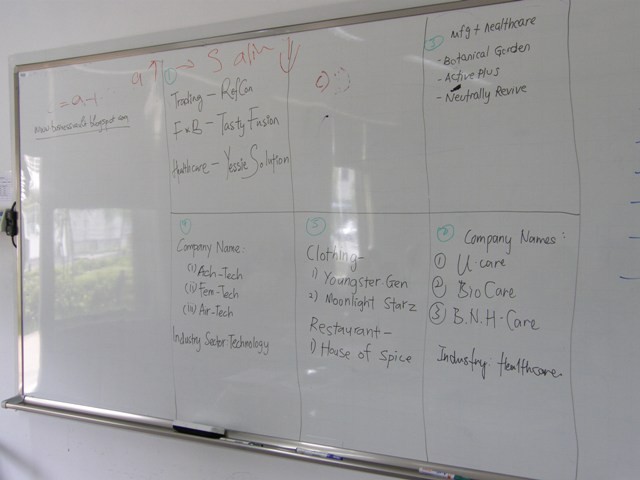 = a-1
①
Trading - RefCon
F x B - Tasty Fusion
Healthcare - Yessie Solution
c)
③
Mfg + healthcare
- Botanical Garden
- Active Plus
- Neutrally Revive
④
Company Name:
(i) Ach-Tech
(ii) Fem-Tech
(iii) Air-Tech
Industry Sector: Technology
⑤
Clothing -
1) Youngster Gen
2) Moonlight Starz
Restaurant -
1) House of Spice
Company Names:
① U care
② BioCare
③ B.N.H-Care
Industry: Healthcare.